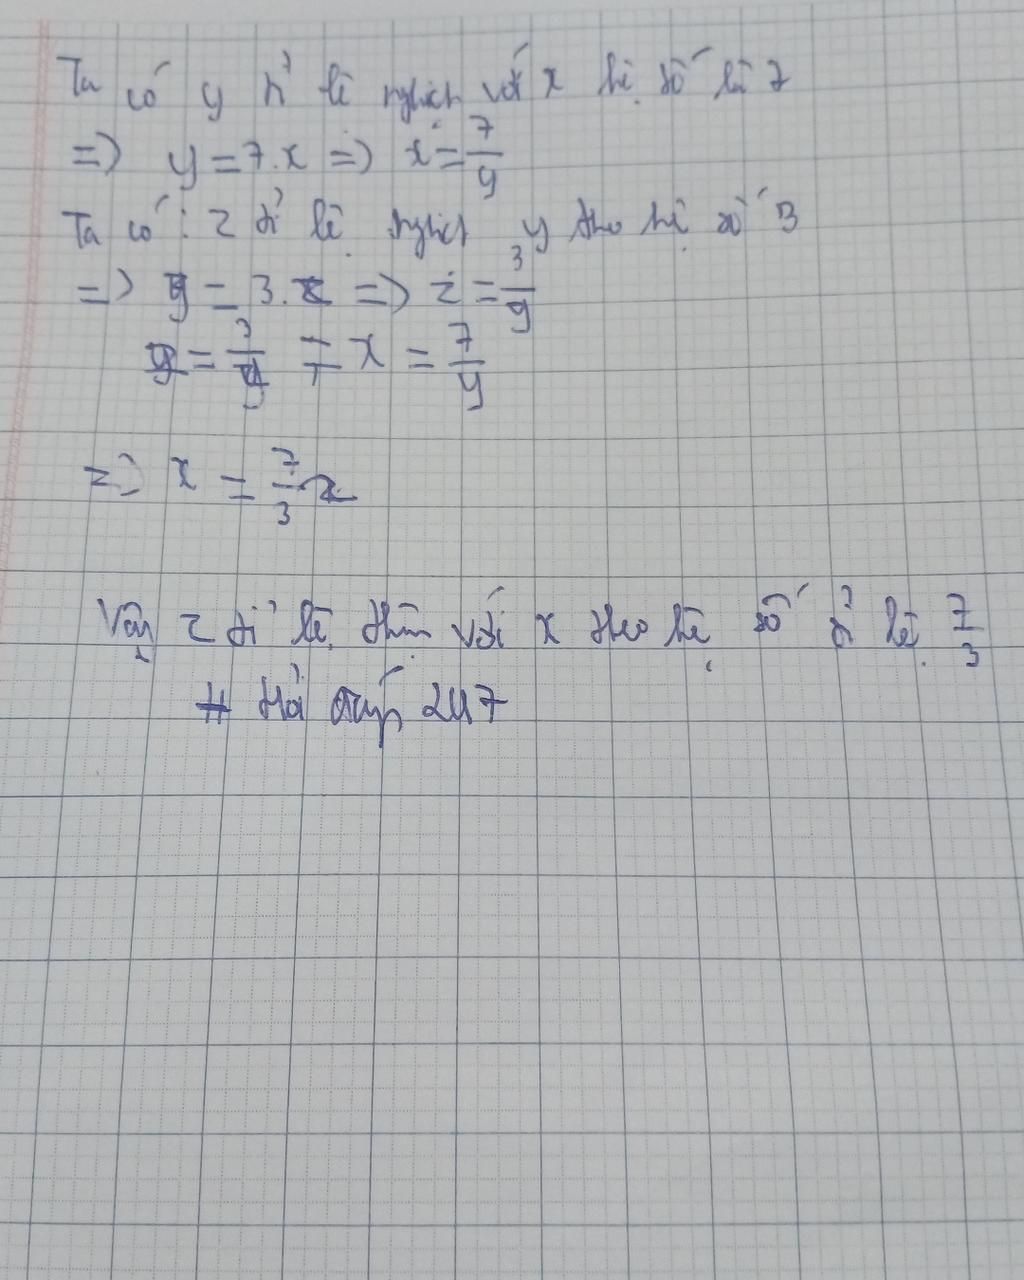 Ta có y tỉ lệ nghịch với x hệ số là 7
=> y = 7.x => x = 7/y
Ta có : z tỉ lệ nghịch y theo hệ số 3
=> y = 3.z => z = 3/y
y = 3/y ≠ x = 7/y
=> x = 7/3 z
Vậy z tỉ lệ thuận với x theo hệ số tỉ lệ 7/3
# Hỏi đáp 247